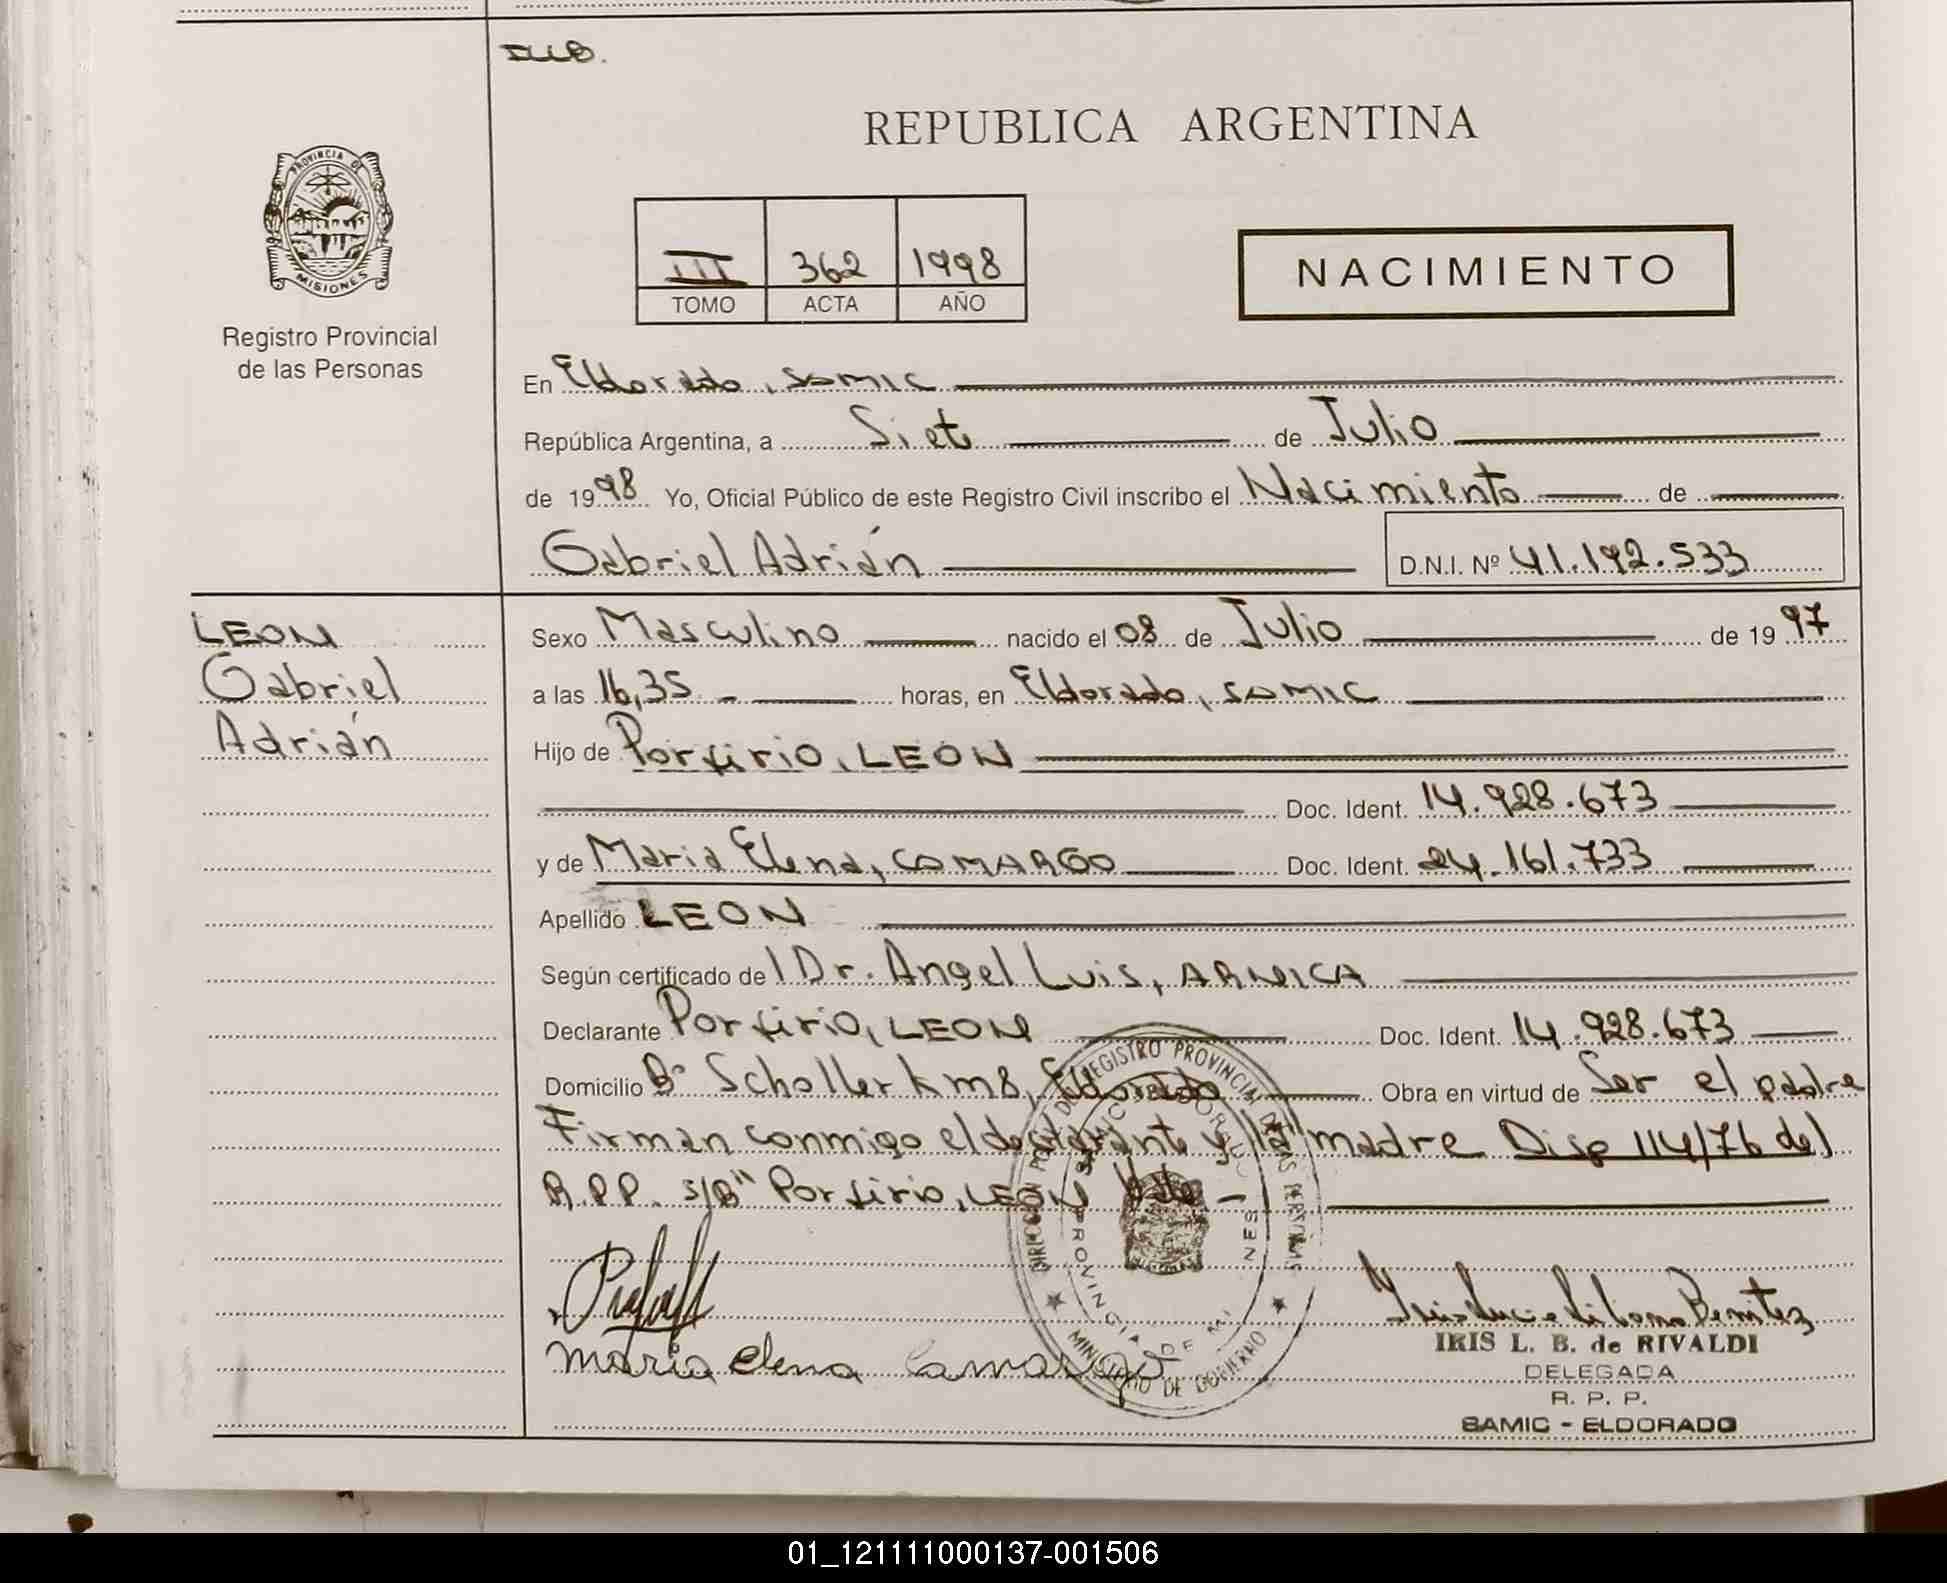 PROVINCIA DE
MISIONES
Registro Provincial
de las Personas
REPUBLICA ARGENTINA
III 362 1998
TOMO ACTA AÑO
NACIMIENTO
En Eldorado, SAMIC
República Argentina, a Siete de Julio
de 1998 Yo, Oficial Público de este Registro Civil inscribo el Nacimiento de
Gabriel Adrián D.N.I. Nº 41.192.533
LEON
Gabriel
Adrián
Sexo Masculino nacido el 08 de Julio de 1997
a las 16,35 horas, en Eldorado, SAMIC
Hijo de Porfirio, LEON
Doc. Ident. 14.928.673
y de Maria Elena, CAMARGO Doc. Ident. 24.161.733
Apellido LEON
Según certificado del Dr. Angel Luis, ARNICA
Declarante Porfirio, LEON Doc. Ident. 14.928.673
Domicilio Bº Scholler km 8, Eldorado Obra en virtud de Ser el padre
Firman conmigo el declarante y la madre Disp 114/76 del
R.P.P. s/B" Porfirio, LEON Vale
Maria Elena Camargo
IRIS L. B. de RIVALDI
DELEGADA
R. P. P.
SAMIC - ELDORADO
01_121111000137-001506